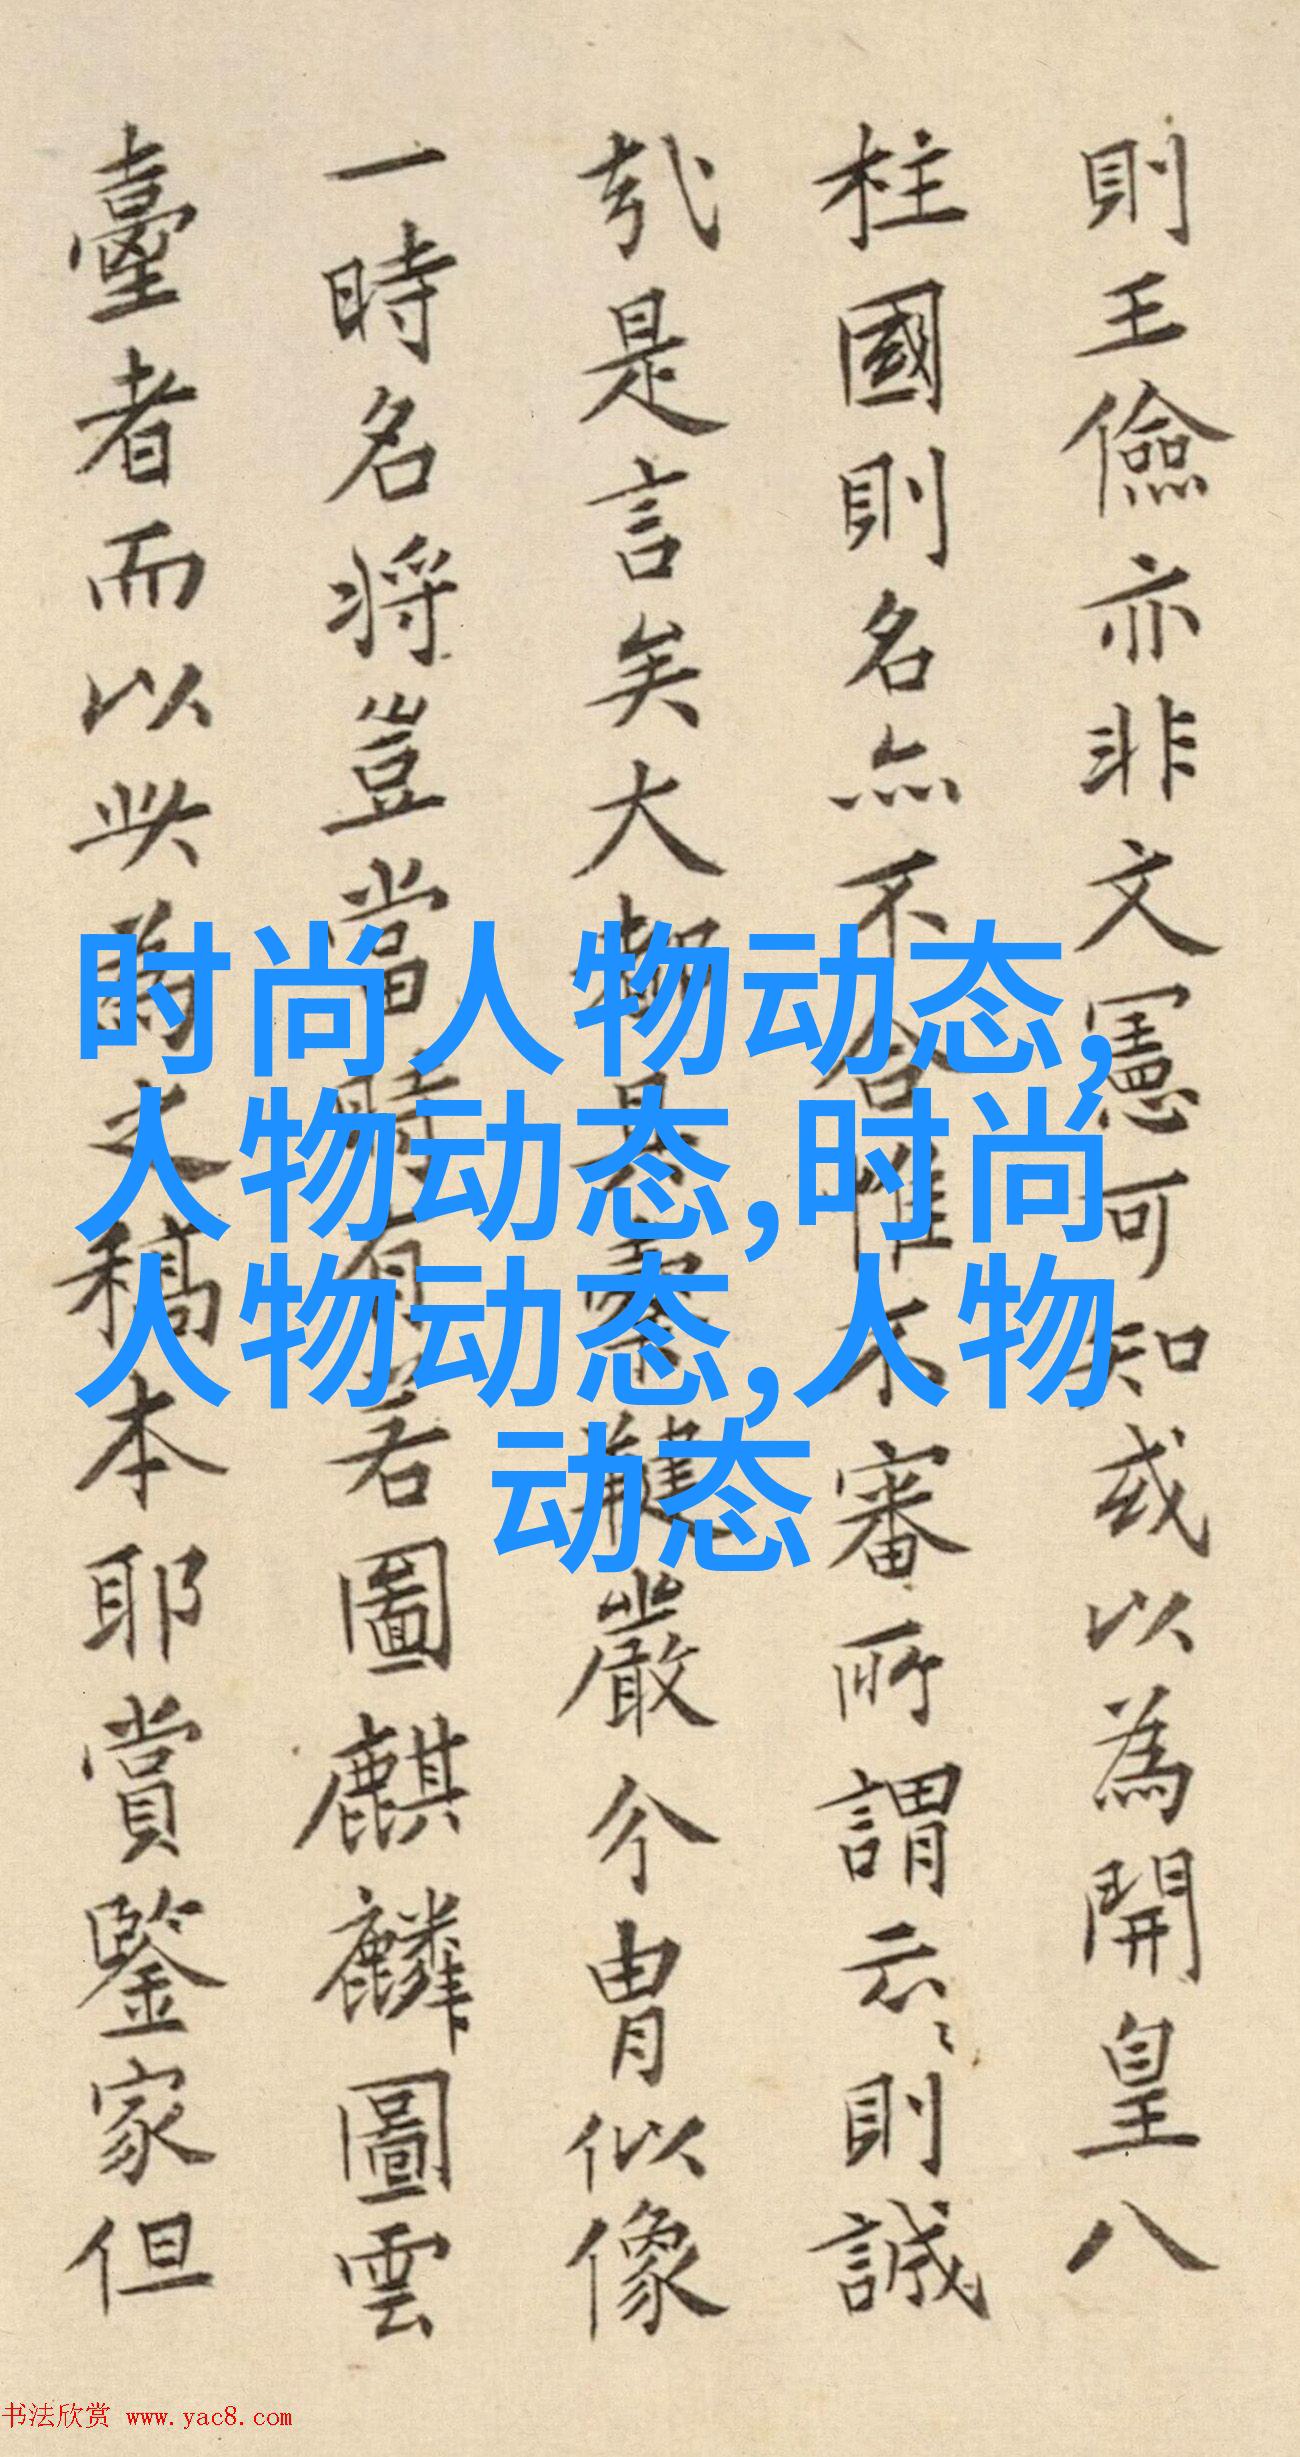 則王儉亦非文憲可知或以為開皇八
柱國則名亦不合惟不審所謂云〻則誠
哉是言矣大都具櫜鞬嚴介胄似像
一時名將豈當時有若圖麒麟圖雲
臺者而以此為之稿本耶賞鑒家但
时尚人物动态,
人物动态,时尚
人物动态,人物
动态
书法欣赏 www.yac8.com